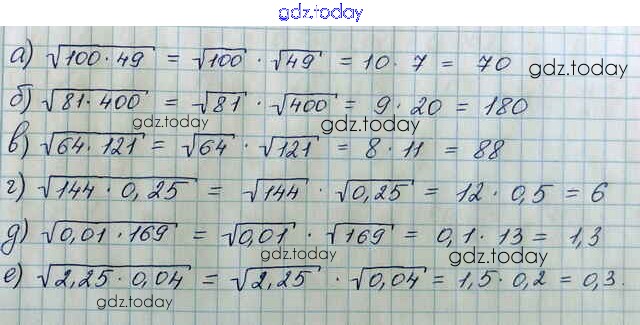 gdz.today
а) √100·49 = √100 · √49 = 10 · 7 = 70 gdz.today
б) √81·400 = √81 · √400 = 9 · 20 = 180
gdz.today gdz.today
в) √64·121 = √64 · √121 = 8 · 11 = 88
г) √144 · 0,25 = √144 · √0,25 = 12 · 0,5 = 6
д) √0,01 · 169 = √0,01 · √169 = 0,1 · 13 = 1,3
gdz.today gdz.today
е) √2,25 · 0,04 = √2,25 · √0,04 = 1,5 · 0,2 = 0,3.
gdz.today gdz.today